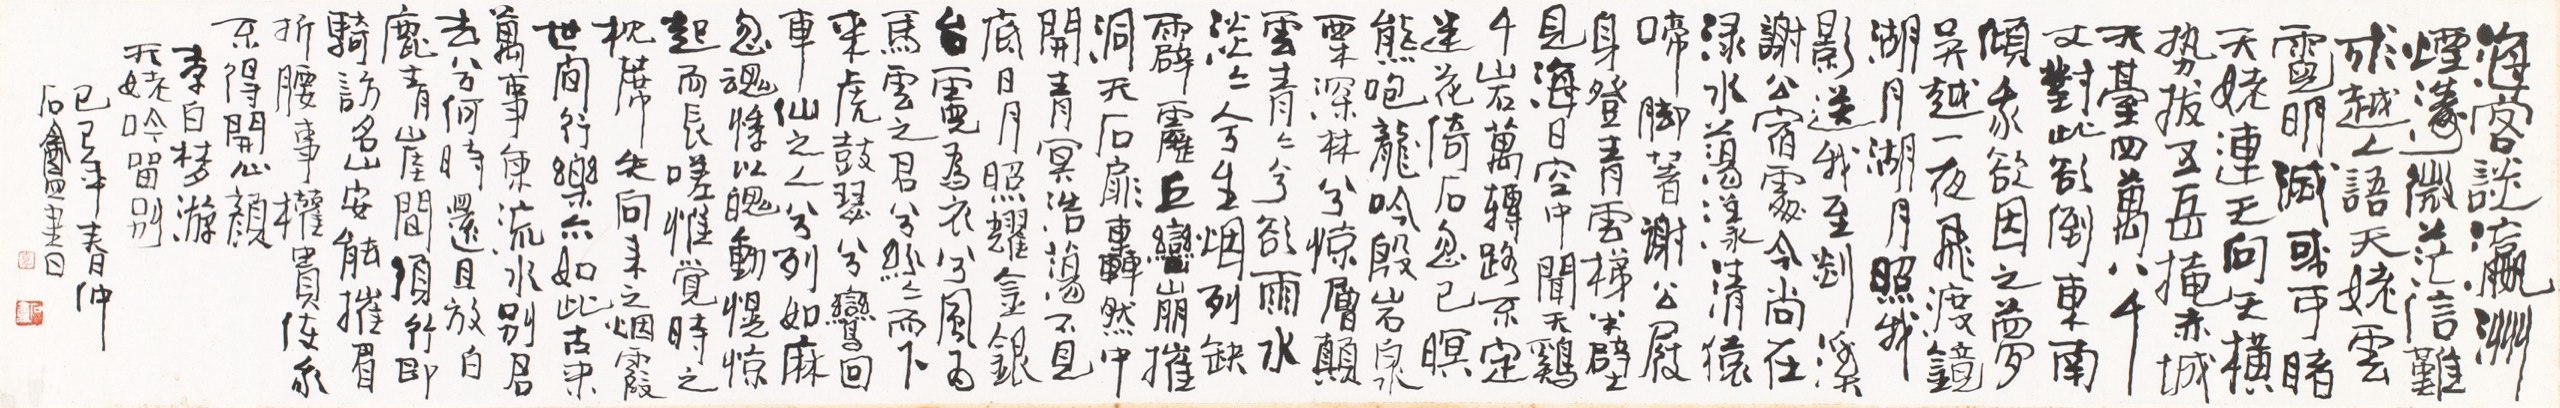 海客談瀛洲
煙濤微茫信難
求越人語天姥雲
霓明滅或可睹
天姥連天向天橫
势拔五岳掩赤城
天臺四萬八千
丈對此欲倒東南
傾我欲因之夢
吳越一夜飛渡鏡
湖月湖月照我
影送我至剡溪
謝公宿處今尚在
渌水蕩漾清猿
啼脚著謝公屐
身登青雲梯半壁
見海日空中聞天鷄
千岩萬轉路不定
迷花倚石忽已暝
熊咆龍吟殷岩泉
栗深林兮惊層顛
雲青々兮欲雨水
淡々兮生烟列缺
霹靂丘巒崩摧
洞天石扉轟然中
開青冥浩蕩不見
底日月照耀金銀
台霓為衣兮風為
馬雲之君兮紛々而下
来虎鼓瑟兮鸞回
車仙之人兮列如麻
忽魂悸以魄動怳惊
起而長嗟惟覚時之
枕席失向来之烟霞
世間行樂亦如此古来
萬事東流水別君
去兮何時還且放白
鹿青崖間須行即
騎訪名山安能摧眉
折腰事權貴使我
不得開心顏
李白梦游
天姥吟留別
己巳年春仲
石盦書